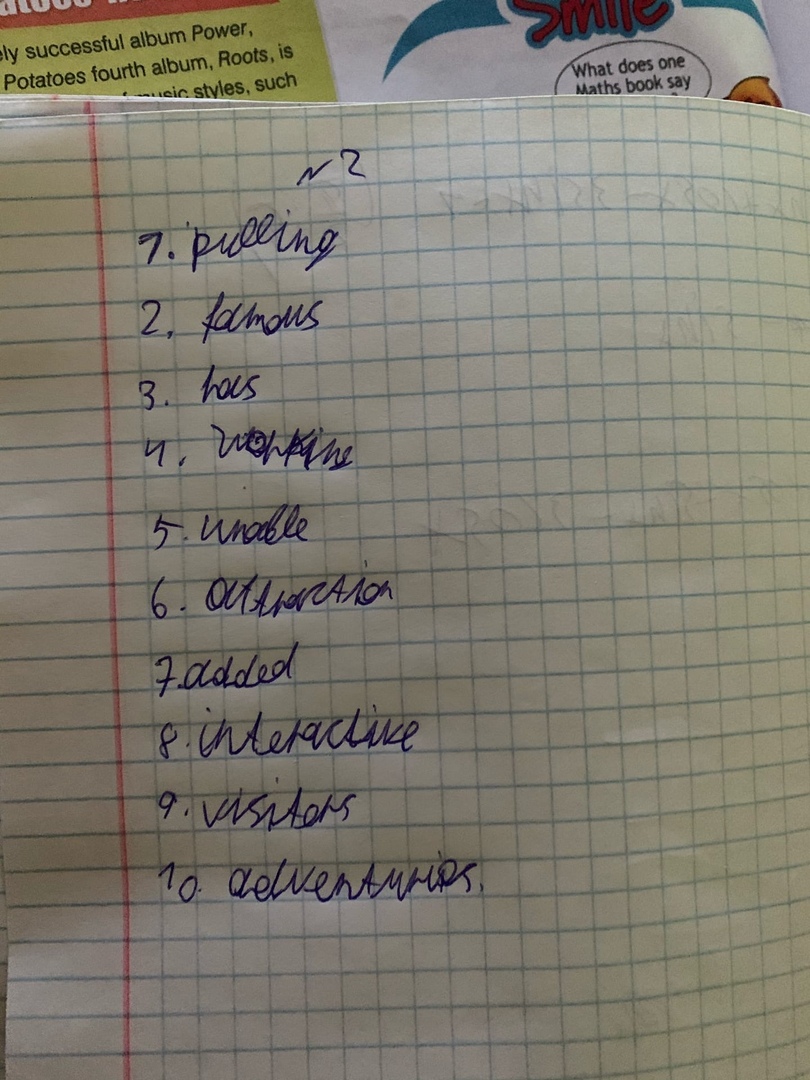 ely successful album Power,
Potatoes fourth album, Roots, is
music styles, such
Smile
What does one
Maths book say
N2
1. pulling
2. famous
3. has
4. working
5. unable
6. attraction
7. added
8. interactive
9. visitors
10. adventurios.